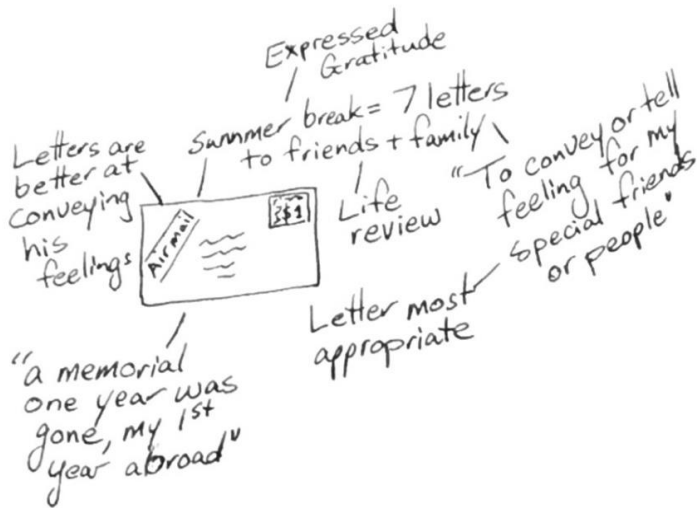 Expressed
Gratitude
Summer break = 7 letters
to friends + family
Letters are
better at
conveying
his
feelings
Air mail
$1
Life
review
"To convey or tell
feeling for my
special friends
or people"
Letter most
appropriate
"a memorial
one year was
gone, my 1st
year abroad"